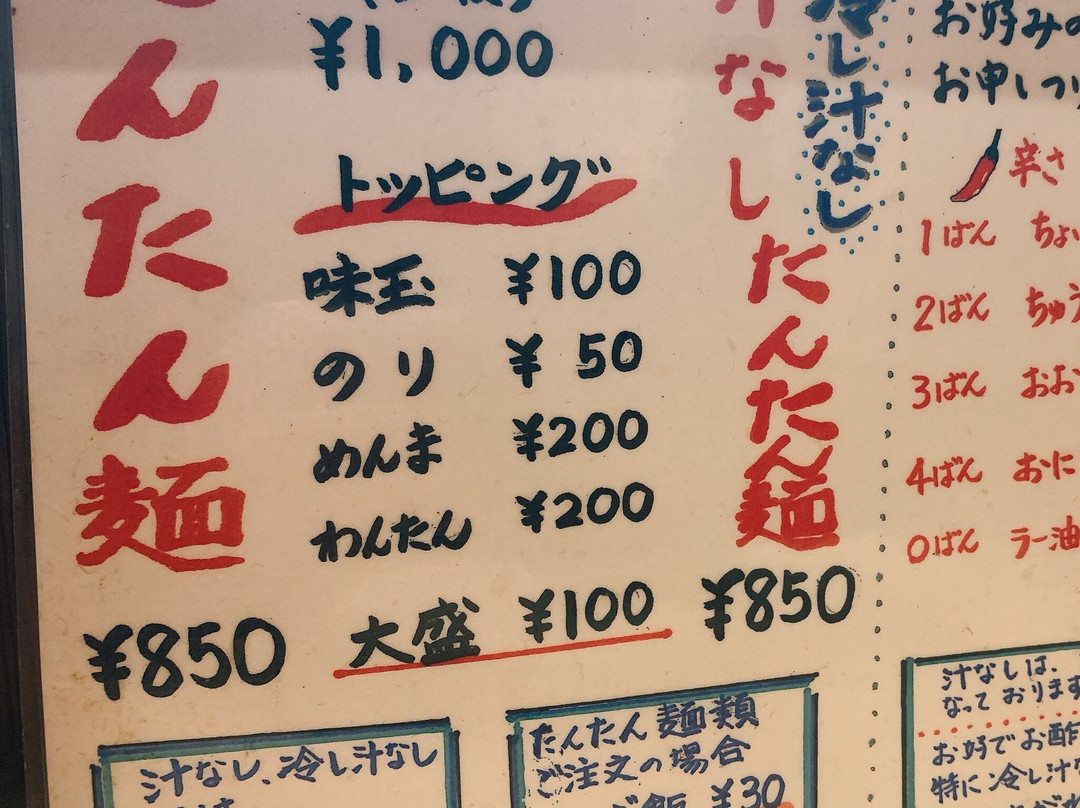 んたん麺
¥850
¥1,000
トッピング
味玉 ¥100
のり ¥50
めんま ¥200
わんたん ¥200
大盛 ¥100
汁なしたんたん麺
¥850
冷し汁なし
お好みの
お申しつけ
辛さ
1ばん ちょい
2ばん ちゅう
3ばん おお
4ばん おに
0ばん ラー油
汁なし、冷し汁なし
たんたん麺類
ご注文の場合
ご飯 ¥30
汁なしは、
なっております
お好でお酢
特に冷し汁な